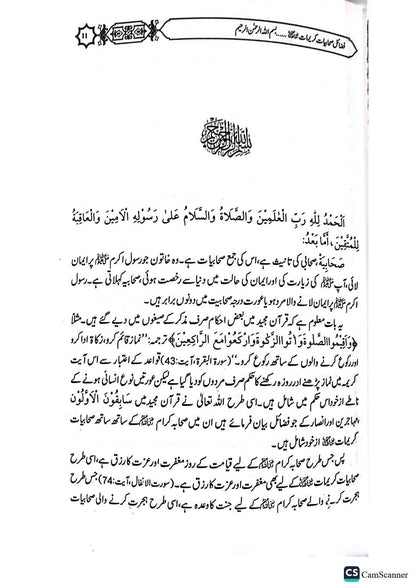 فضائل صحابیات کریمات ؓ ...... بسم اللہ الرحمٰن الرحیم
۱۱
بسم اللہ الرحمن الرحیم
اَلْحَمْدُ لِلّٰهِ رَبِّ الْعٰلَمِيْنَ وَالصَّلَاةُ وَالسَّلَامُ عَلىٰ رَسُوْلِهِ الْاَمِيْنَ وَالْعَاقِبَةُ
لِلْمُتَّقِيْنَ، أَمَّا بَعْدُ:
صَحَابِيَةٌ صحابی کی تانیث ہے، اس کی جمع صحابیات ہے۔ وہ خاتون جو رسول اکرم ﷺ پر ایمان
لائی، آپ ﷺ کی زیارت کی اور ایمان کی حالت میں دنیا سے رخصت ہوئی صحابیہ کہلاتی ہے۔ رسول
اکرم ﷺ پر ایمان لانے والا مرد ہو یا عورت درجہ صحابیت میں دونوں برابر ہیں۔
یہ بات معلوم ہے کہ قرآن مجید میں بعض احکام صرف مذکر کے صیغوں میں دیے گئے ہیں۔ مثلاً
﴿وَاَقِيْمُوا الصَّلٰوةَ وَاٰتُوا الزَّكٰوةَ وَارْكَعُوْا مَعَ الرّٰاكِعِيْنَ﴾ ترجمہ: ’’نماز قائم کرو، زکاۃ ادا کرو
اور رکوع کرنے والوں کے ساتھ رکوع کرو۔‘‘ (سورۃ البقرۃ، آیت:43) قواعد کے اعتبار سے اس آیت
کریمہ میں نماز پڑھنے اور روزہ رکھنے کا حکم صرف مردوں کو دیا گیا ہے لیکن عورتیں نوع انسانی ہونے کے
ناطے از خود اس حکم میں شامل ہیں۔ اسی طرح اللہ تعالیٰ نے قرآن مجید میں سَابِقُوْنَ الْاَوَّلُوْنَ
مہاجرین اور انصار کے جو فضائل بیان فرمائے ہیں ان میں صحابہ کرام ؓ کے ساتھ ساتھ صحابیات
کریمات ؓ از خود شامل ہیں۔
پس جس طرح صحابہ کرام ؓ کے لیے قیامت کے روز مغفرت اور عزت کا رزق ہے، اسی طرح
صحابیات کریمات ؓ کے لیے بھی مغفرت اور عزت کا رزق ہے۔ (سورت الانفال، آیت:74) جس طرح
ہجرت کرنے والے صحابہ کرام ؓ کے لیے جنت کا وعدہ ہے، اسی طرح ہجرت کرنے والی صحابیات
CS CamScanner